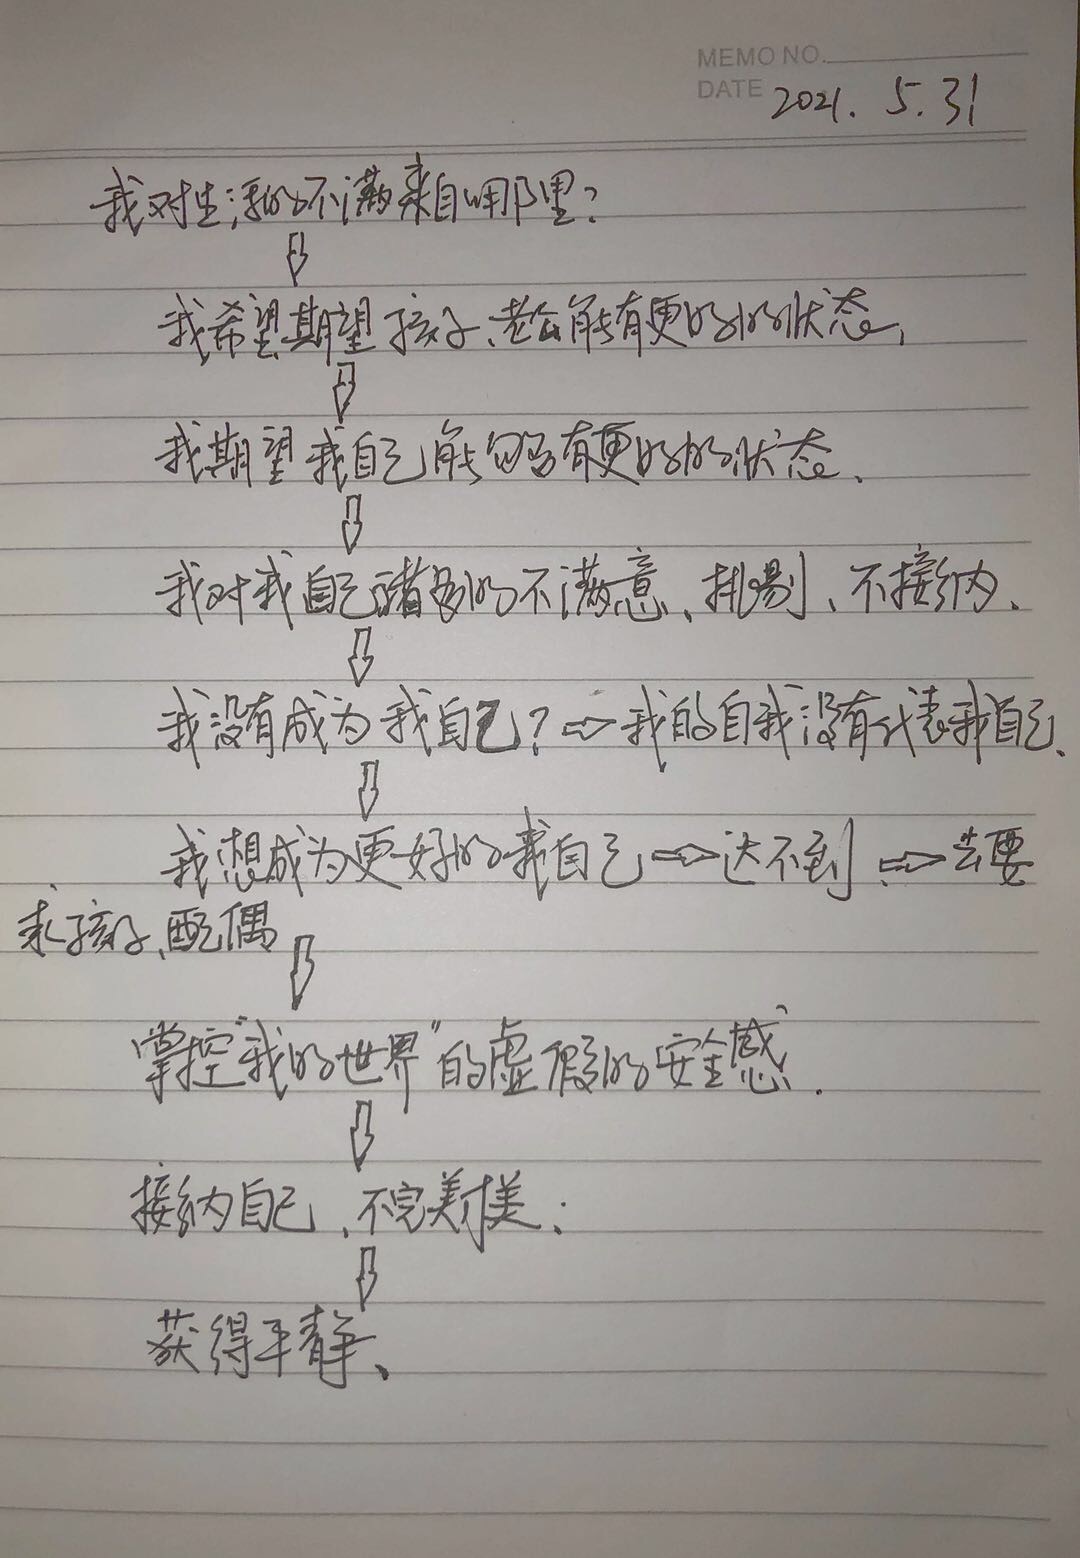 MEMO NO.
DATE 2021. 5. 31
我对生活的不满来自哪里?
⇩
我希望期望孩子、老公能有更好的状态,
⇩
我期望我自己能够有更好的状态、
⇩
我对我自己诸多的不满意、挑剔、不接纳、
⇩
我没有成为我自己? ⇨ 我的自我没有代表我自己、
⇩
我想成为更好的我自己 ⇨ 达不到 ⇨ 去要
求孩子、配偶
⇩
掌控"我的世界"的虚假的安全感.
⇩
接纳自己、不完美才美;
⇩
获得平静、